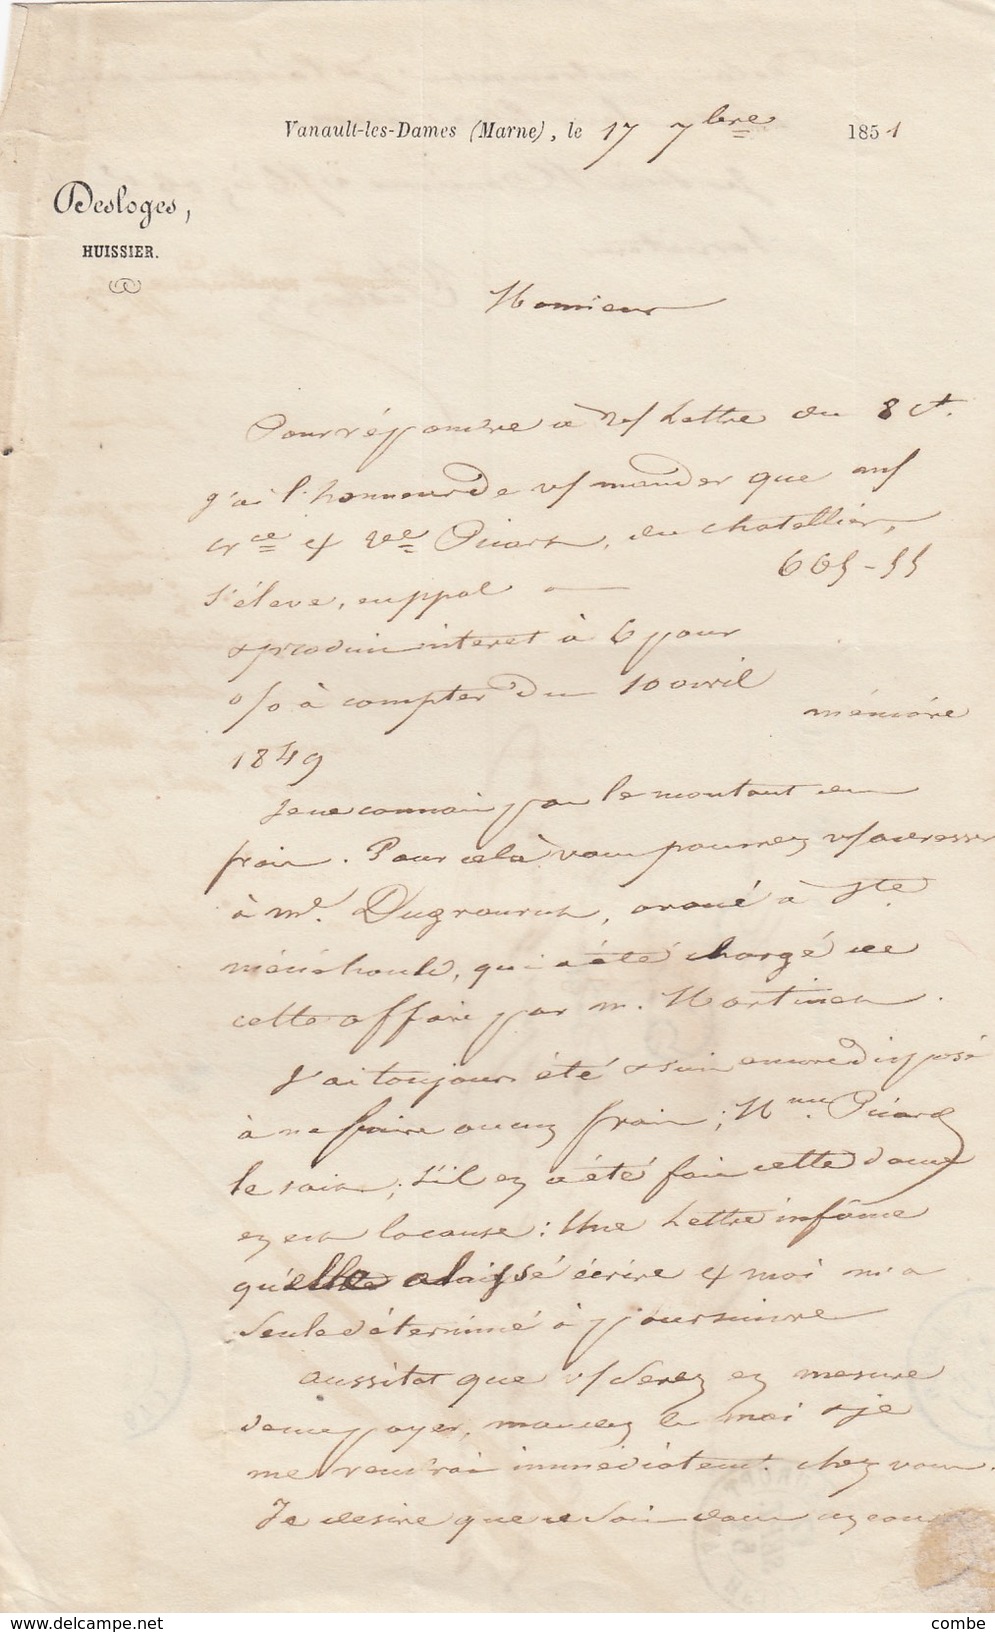 Vanault-les-Dames (Marne), le 17 7bre 1851
Desloges,
HUISSIER.
Monsieur
Pour répondre à v/ Lettre du 8 ct.
j'ai l'honneur de v/ mander que
cce & Vve Picart, du chatellier,
s'élève, en ppal — 665-55
& produit interet à 6 pour
o/o à compter du 10 avril
mémoire
1849
Je ne connais pas le montant des
frais. Pour cela vous pourrez v/ adresser
à Mr. Dugrourut, avoué à Ste
ménéhould, qui a été chargé de
cette affaire par m. Martinet.
J'ai toujours été & suis encore disposé
à ne faire aucuns frais; Mme Picard
le sait; s'il en a été fait cette dame
en est la cause: Une Lettre infâme
qu'elle a laissé écrire & moi m'a
seule déterminé à poursuivre
aussitot que v/ serez en mesure
de me payer, mandez le moi & je
me rendrai immédiatemt. chez vous.
Je desire que ce soit dans
delcampe.net
combe